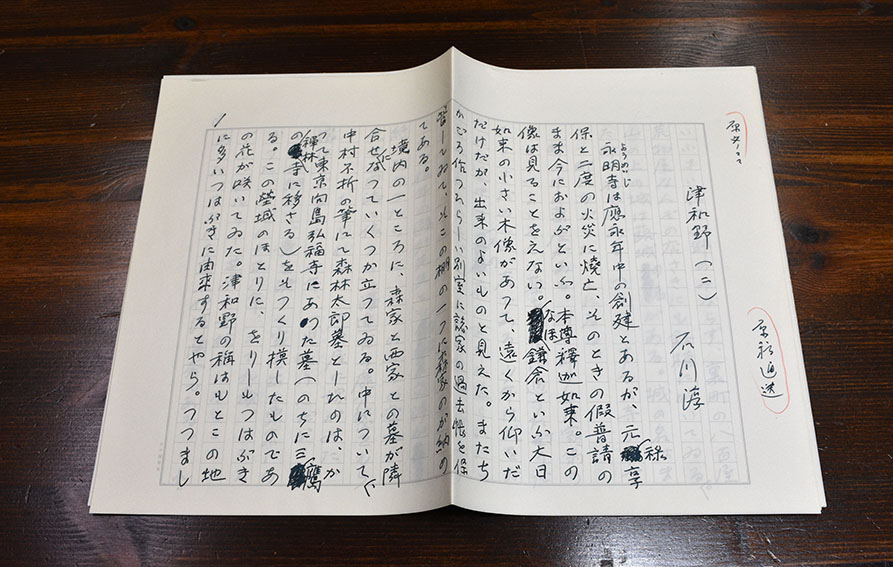 津和野(二)
石川淳
ようめいじ
永明寺は應永年中の創建とあるが、元禄享
保と二度の火災に燒亡、そのときの假普請の
まま今におよぶといふ。本尊釋迦如来。この
像は見ることをえない。なほ鎌倉といふ大日
如来の小さい木像があつて、遠くから仰いだ
だけだが、出来のよいものと見えた。またち
かごろ作つたらしい別室に諸家の過去帳を保
管してゐて、そこの棚の一つに森家のが納め
てある。
境内の一ところに、森家と西家との墓が隣
合せになつていくつか立つてゐる。中について、
中村不折の筆にて森林太郎墓としれのは、か
つて東京向島弘福寺にあつた墓(のちに三鷹
の禪林寺に移さる)をそつくり模したものであ
る。この塋域のほとりに、をりしもつはぶき
の花が咲いてゐた。津和野の稱はもとこの地
に多いつはぶきに由来するとやら。つつまし